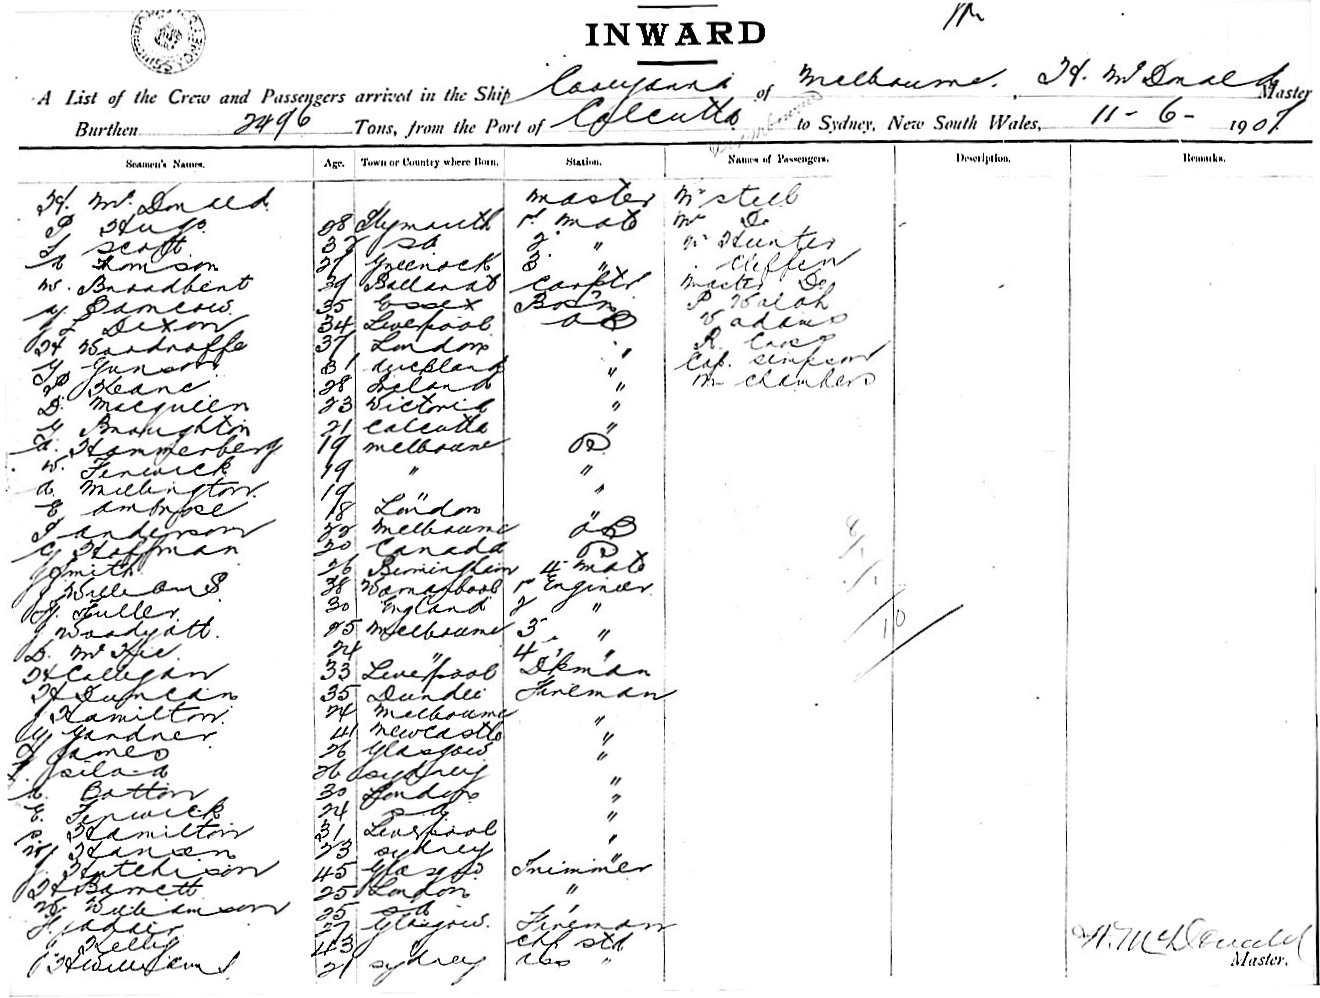 INWARD
A List of the Crew and Passengers arrived in the Ship Cooeyanna of Melbourne, H. McDonald Master
Burthen 2496 Tons, from the Port of Calcutta to Sydney, New South Wales, 11-6-1907
Seamen's Names. Age. Town or Country where Born. Station. Names of Passengers. Description. Remarks.
H. McDonald Master Mr Steel
P Hugo 28 Plymouth 1st Mate Mrs Do
T Scott 32 SA 2 " Hunter
A Tomson 27 Greenock 3 " Cliffen
W. Broadbent 39 Ballarat Carptr Master Do
35 Essex Bos'n P Walsh
Dixon 34 Liverpool AB V Adams
H Woodroffe 37 London " R Cross
G Gunson 31 Auckland " Cap. Simpson
P Keane 28 Ireland " Mr Chambers
D. Macqueen 23 Victoria "
G Broughton 21 Calcutta "
A. Hammerberg 19 Melbourne
W. Fenwick 19 " "
A. Millington 19 " "
E Ambrose 18 London "
T Anderson 22 Melbourne AB
C Hoffman 20 Canada
J Smith 26 Birmingham 4 Mate
J Williams 38 Warnambool 1st Engineer
H. Fuller 30 England 2 "
J Woodyatt 25 Melbourne 3 "
D. McKie 24 " 4 "
H Calligan 33 Liverpool Dkman
H Duncan 35 Dundee Fireman
J Hamilton 24 Melbourne "
G Gardner 41 Newcastle "
James 26 Glasgow "
26 Sydney
A. Botton 30 London "
E. Fenwick 24 "
S Hamilton 31 Liverpool "
W Hansen 23 Sydney "
J. Hutchison 45 Glasgow Trimmer
H Barnett 25 London "
W. Williamson 25 "
27 Glasgow Fireman
J Kelly 43 " Chf Std
H Williams 21 Sydney Ass "
8
1
1
10
H. McDonald
Master.